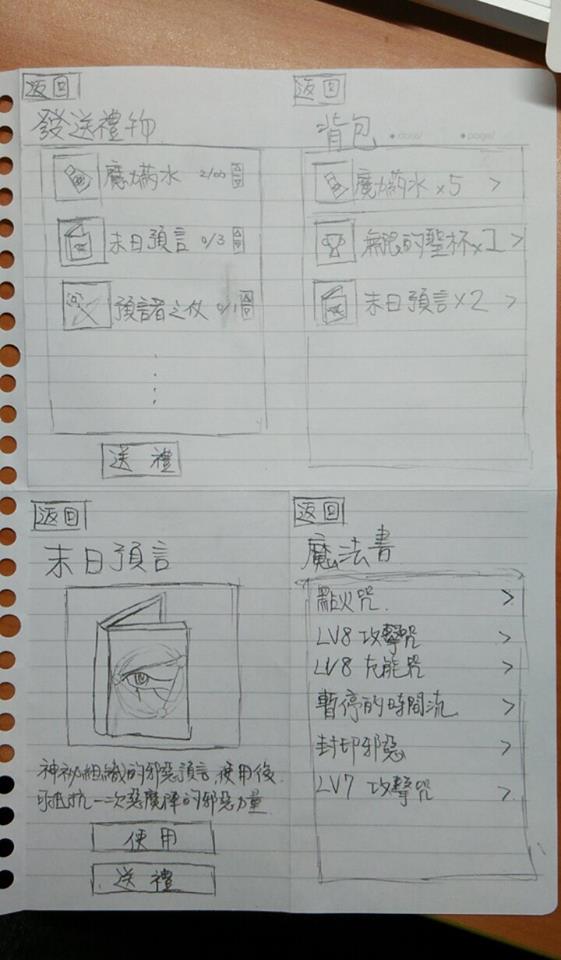 返回
發送禮物
魔力葯水 2/00
末日預言 0/3
預言者之仗 0/1
送禮
返回
背包
date/ page/
魔力葯水 x5 >
無限的聖杯 x1 >
末日預言 x2 >
返回
末日預言
神祕組織的邪惡預言 使用後
可抵抗一次惡魔陣的邪惡力量
使用
送禮
返回
魔法書
點火咒 >
LV8 攻擊咒 >
LV8 咒 >
暫停的時間流 >
封印邪惡 >
LV7 攻擊咒 >